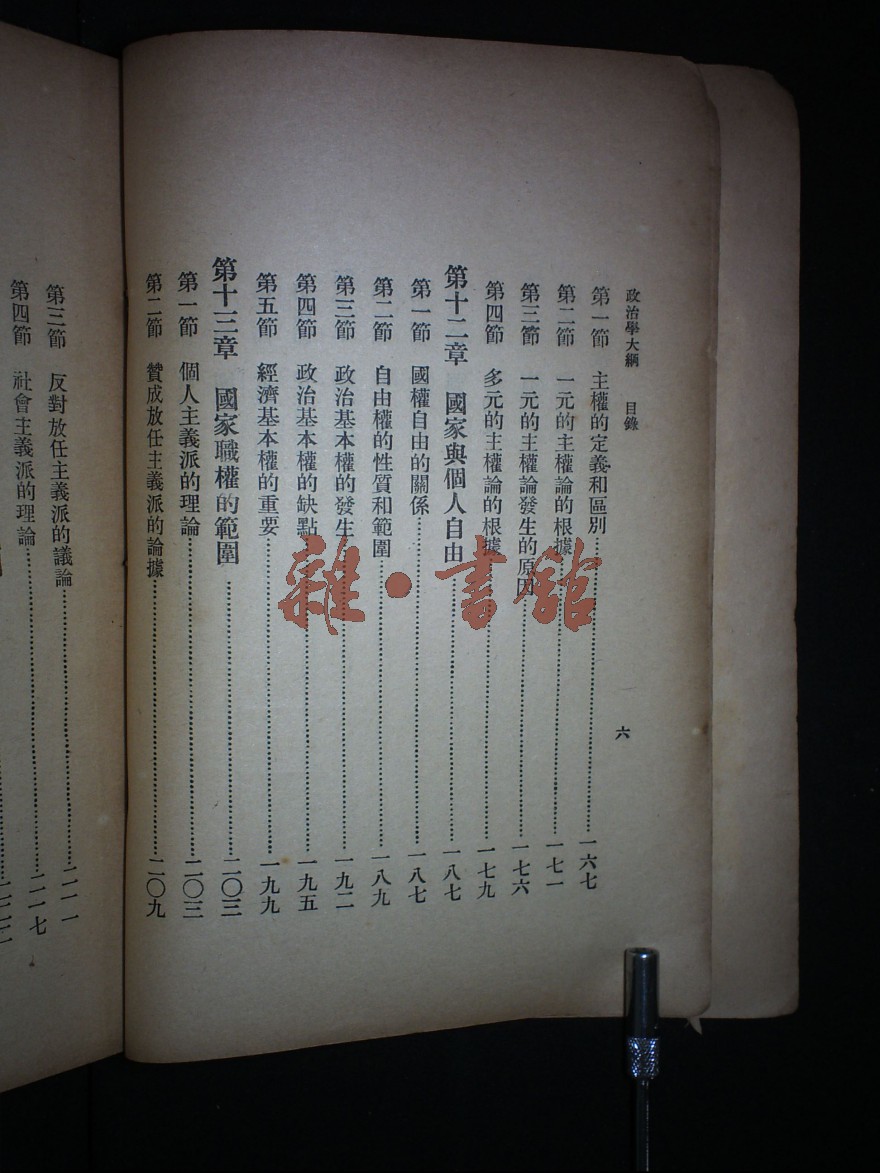 政治學大綱　目錄
六
第一節　主權的定義和區別……一六七
第二節　一元的主權論的根據……一七一
第三節　一元的主權論發生的原因……一七六
第四節　多元的主權論的根據……一七九
第十二章　國家與個人自由……一八七
第一節　國權自由的關係……一八七
第二節　自由權的性質和範圍……一八九
第三節　政治基本權的發生……一九二
第四節　政治基本權的缺點……一九五
第五節　經濟基本權的重要……一九九
第十三章　國家職權的範圍……二〇三
第一節　個人主義派的理論……二〇三
第二節　贊成放任主義派的論據……二〇九
第三節　反對放任主義派的議論……二一一
第四節　社會主義派的理論……二一七
雜·書館